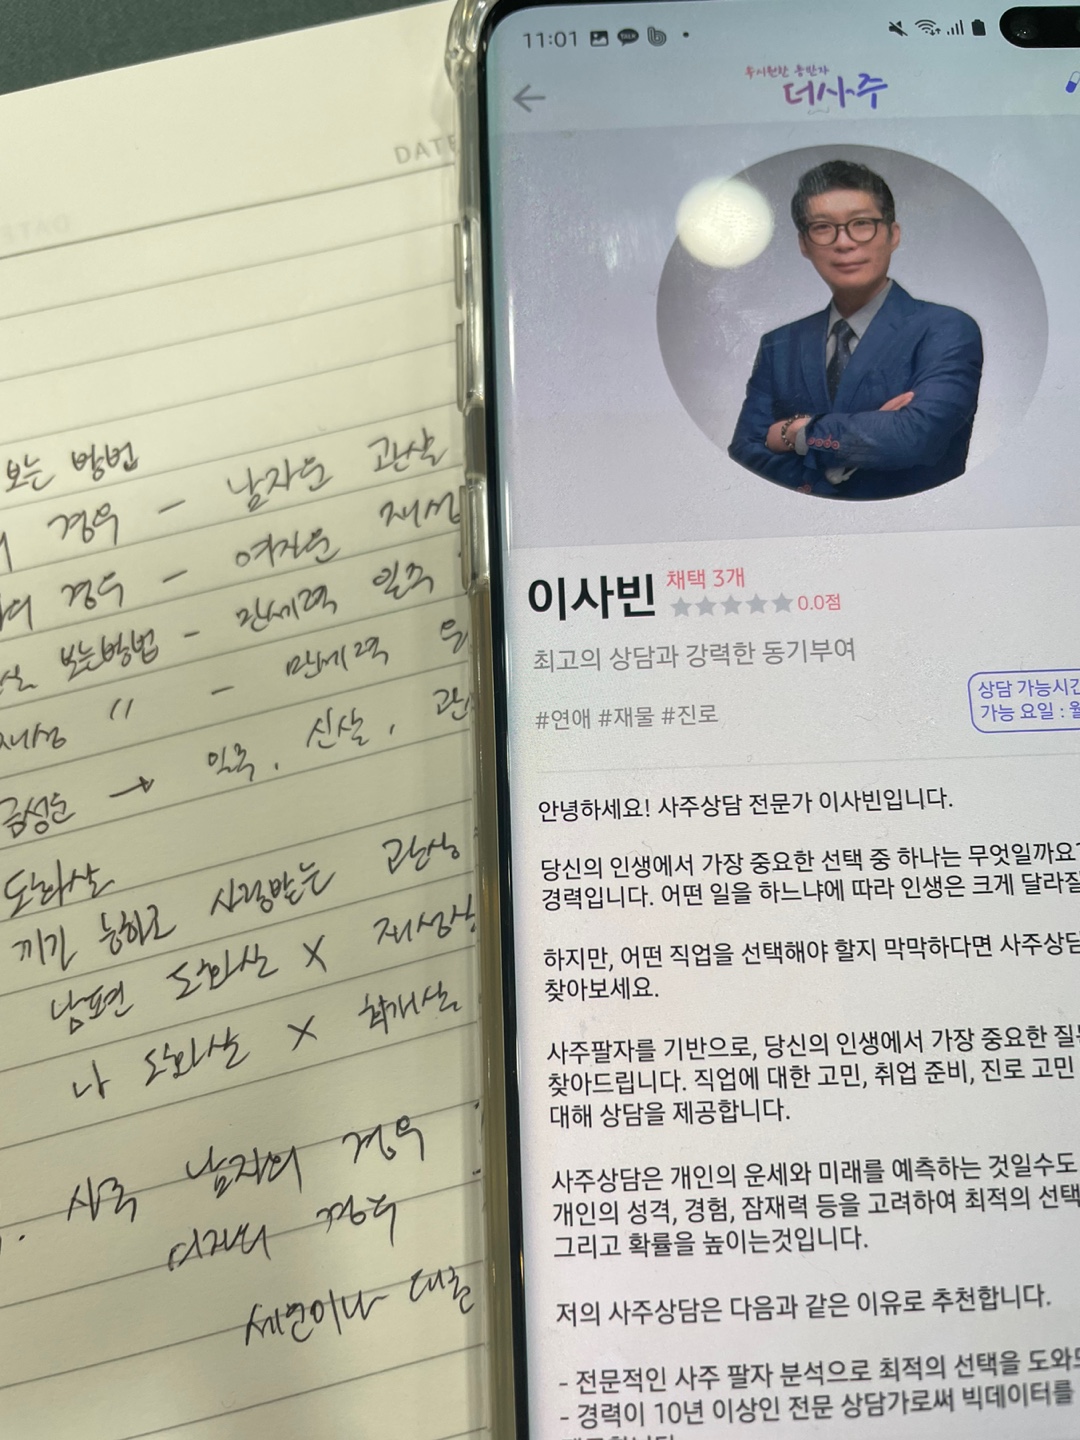 DATE
보는 방법
경우 - 남자운 관살
경우 - 여자운 재성
보는방법 - 만세력 일주
재성 〃 - 만세력
금성운 → 일주, 신살, 관
도화살
끼가 능하고 사랑받는 관상
남편 도화살 X 재성상
나 도화살 X 화개살
사주 남자의 경우
여자의 경우
세연이나 대운
11:01
후시원한 동반자
더사주
이사빈 채택 3개
0.0점
최고의 상담과 강력한 동기부여
#연애 #재물 #진로
상담 가능시간
가능 요일 : 월
안녕하세요! 사주상담 전문가 이사빈입니다.
당신의 인생에서 가장 중요한 선택 중 하나는 무엇일까요?
경력입니다. 어떤 일을 하느냐에 따라 인생은 크게 달라질
하지만, 어떤 직업을 선택해야 할지 막막하다면 사주상담
찾아보세요.
사주팔자를 기반으로, 당신의 인생에서 가장 중요한 질문
찾아드립니다. 직업에 대한 고민, 취업 준비, 진로 고민
대해 상담을 제공합니다.
사주상담은 개인의 운세와 미래를 예측하는 것일수도
개인의 성격, 경험, 잠재력 등을 고려하여 최적의 선택
그리고 확률을 높이는것입니다.
저의 사주상담은 다음과 같은 이유로 추천합니다.
- 전문적인 사주 팔자 분석으로 최적의 선택을 도와드
- 경력이 10년 이상인 전문 상담가로써 빅데이터를